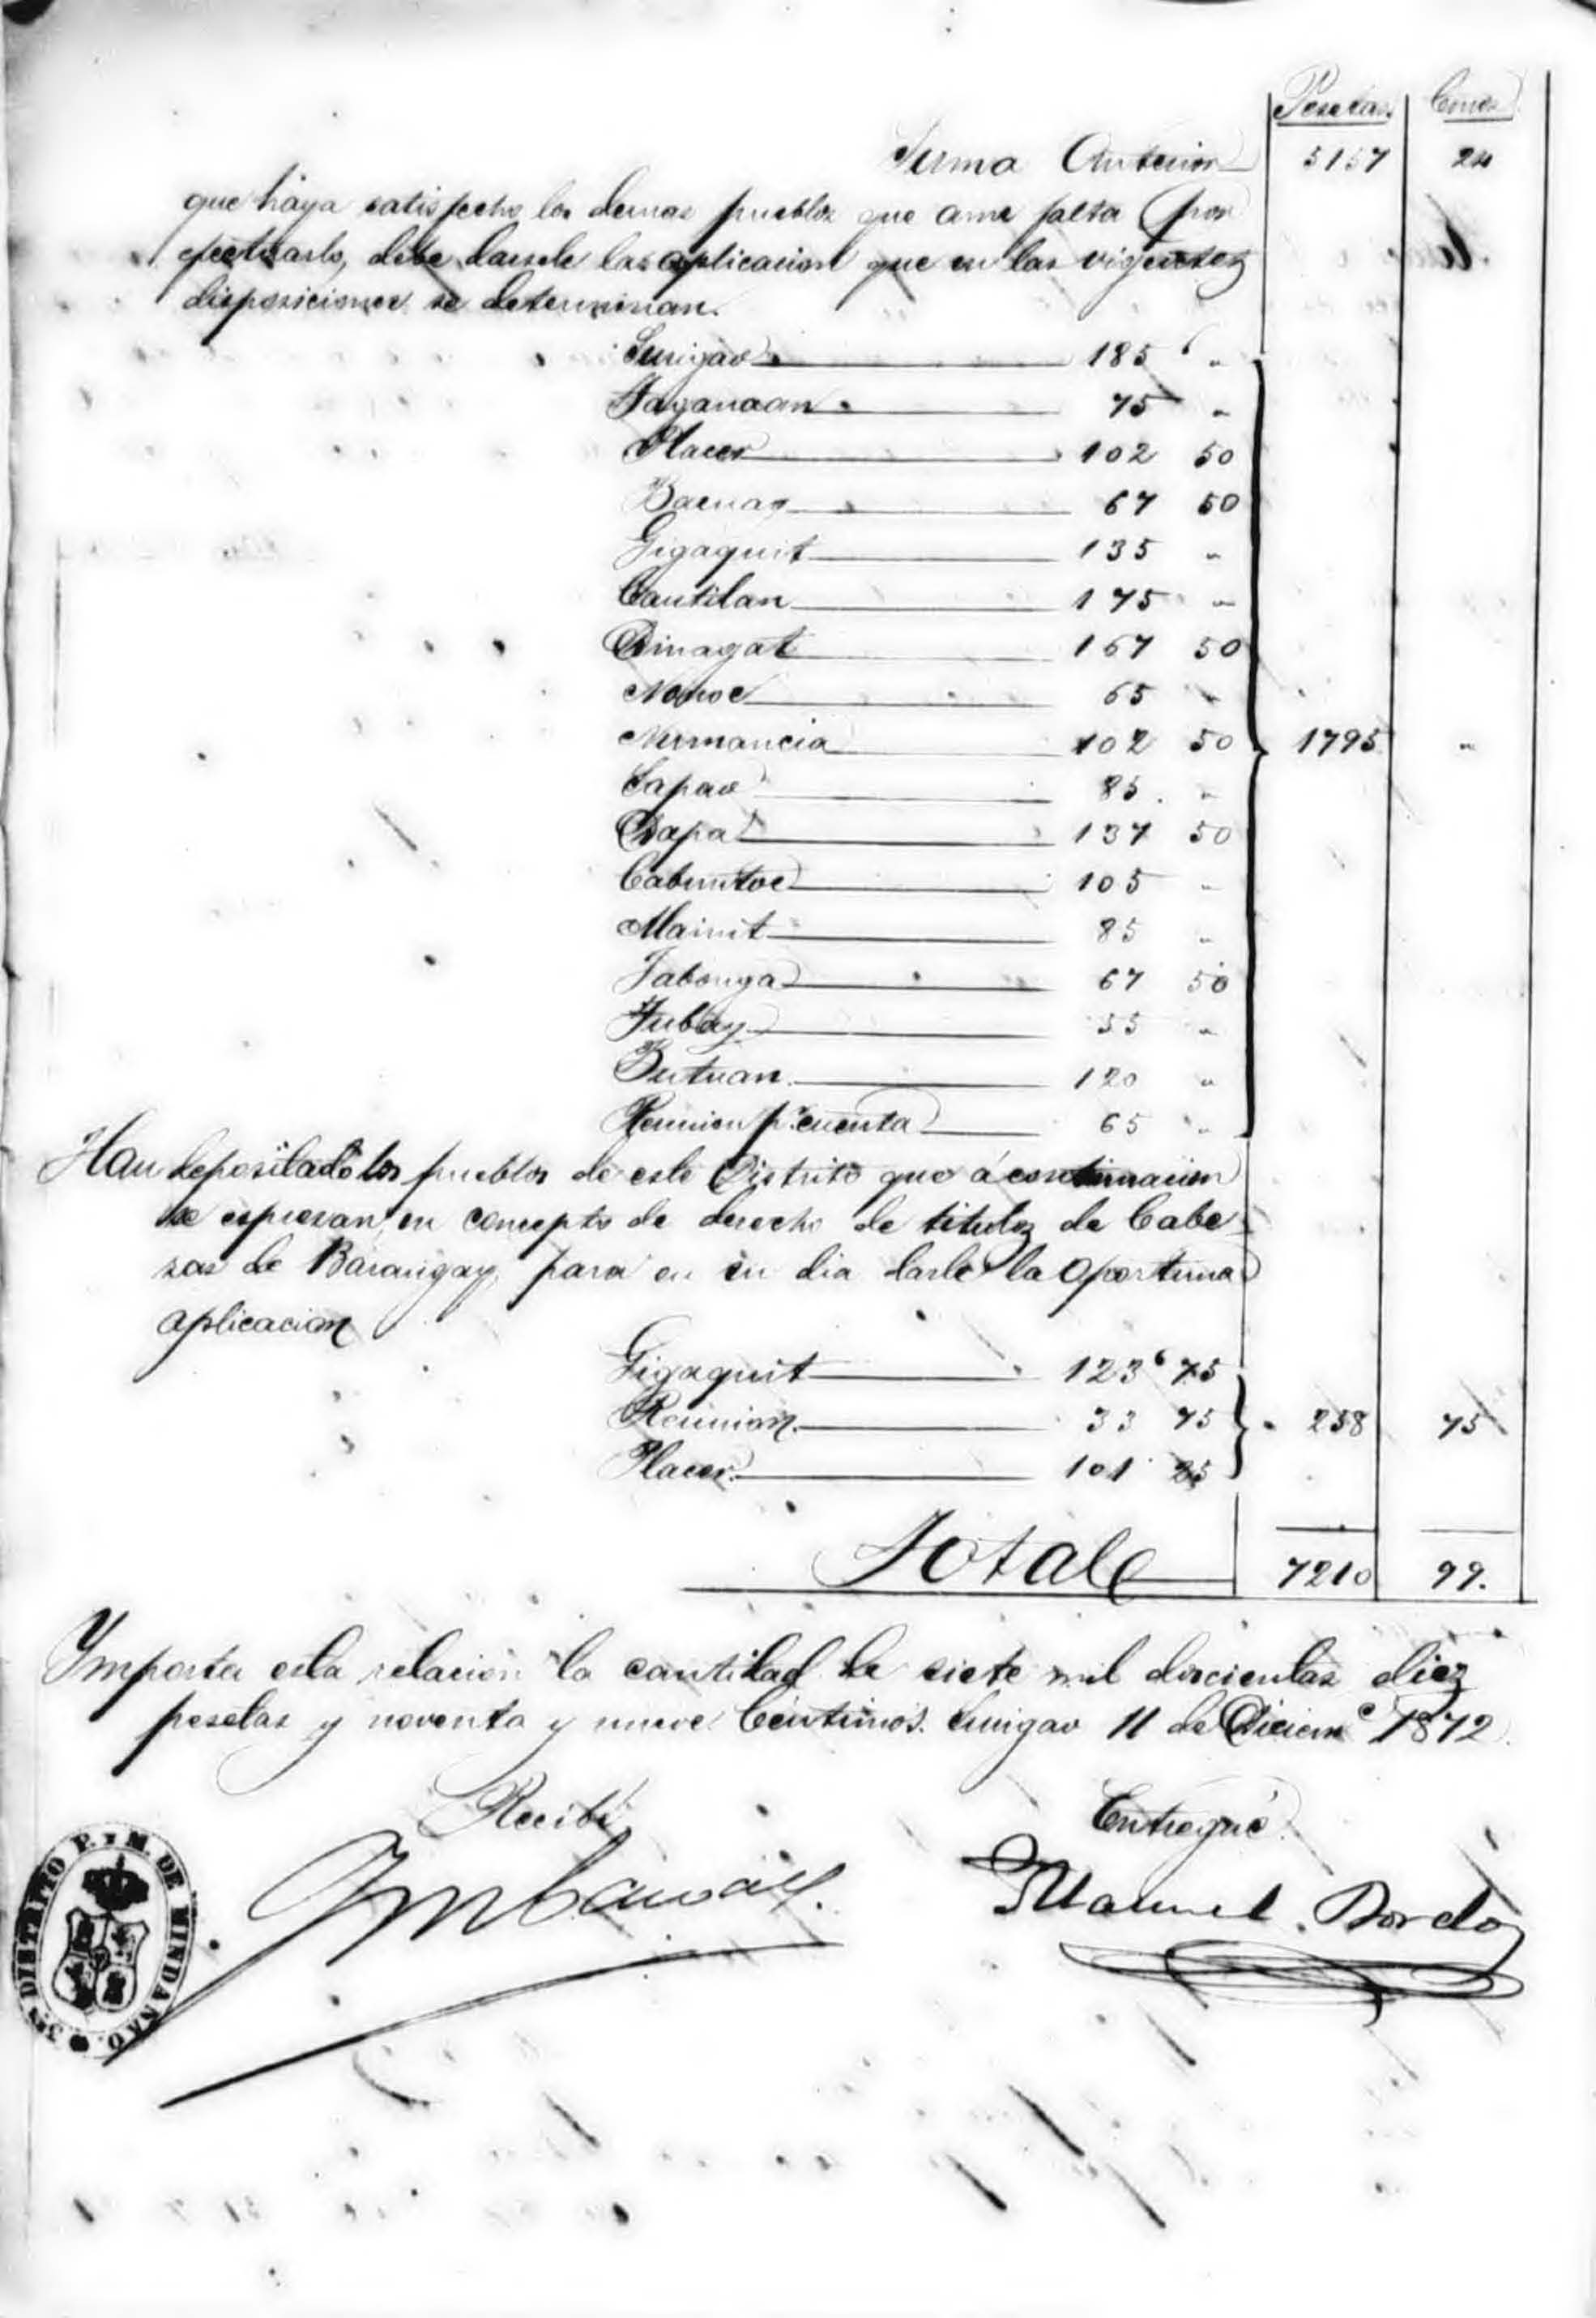 Pesetas Cénts
Suma Anterior 5157 24
que haya satisfecho los demas pueblos que aun falta por
efectuarlo, debe darsele la aplicacion que en las vigentes
disposiciones se determinan.
Surigao 185 "
Taganaan 75 "
Placer 102 50
Bacuag 67 50
Gigaquit 135 "
Cantilan 175 "
Dinagat 167 50
Nonoc 65 "
Numancia 102 50 1795 "
Sapao 85 "
Dapa 137 50
Cabuntoc 105 "
Mainit 85 "
Jabonga 67 50
Tubay 55 "
Butuan 120 "
Reunion pr. cuenta 65 "
Han depositado los pueblos de este Distrito que á continuacion
se espresan, en concepto de derecho de titulos de Cabe-
zas de Barangay, para en su dia darle la oportuna
aplicacion
Gigaquit 123 75
Reunion 33 75 258 75
Placer 101 25
Total 7210 99.
Ymporta esta relacion la cantidad de siete mil doscientas diez
pesetas y noventa y nueve Centimos. Surigao 11 de Dicieme 1872.
Recibí Entregué
Manuel
3ER DISTRITO P. Y M. DE MINDANAO.